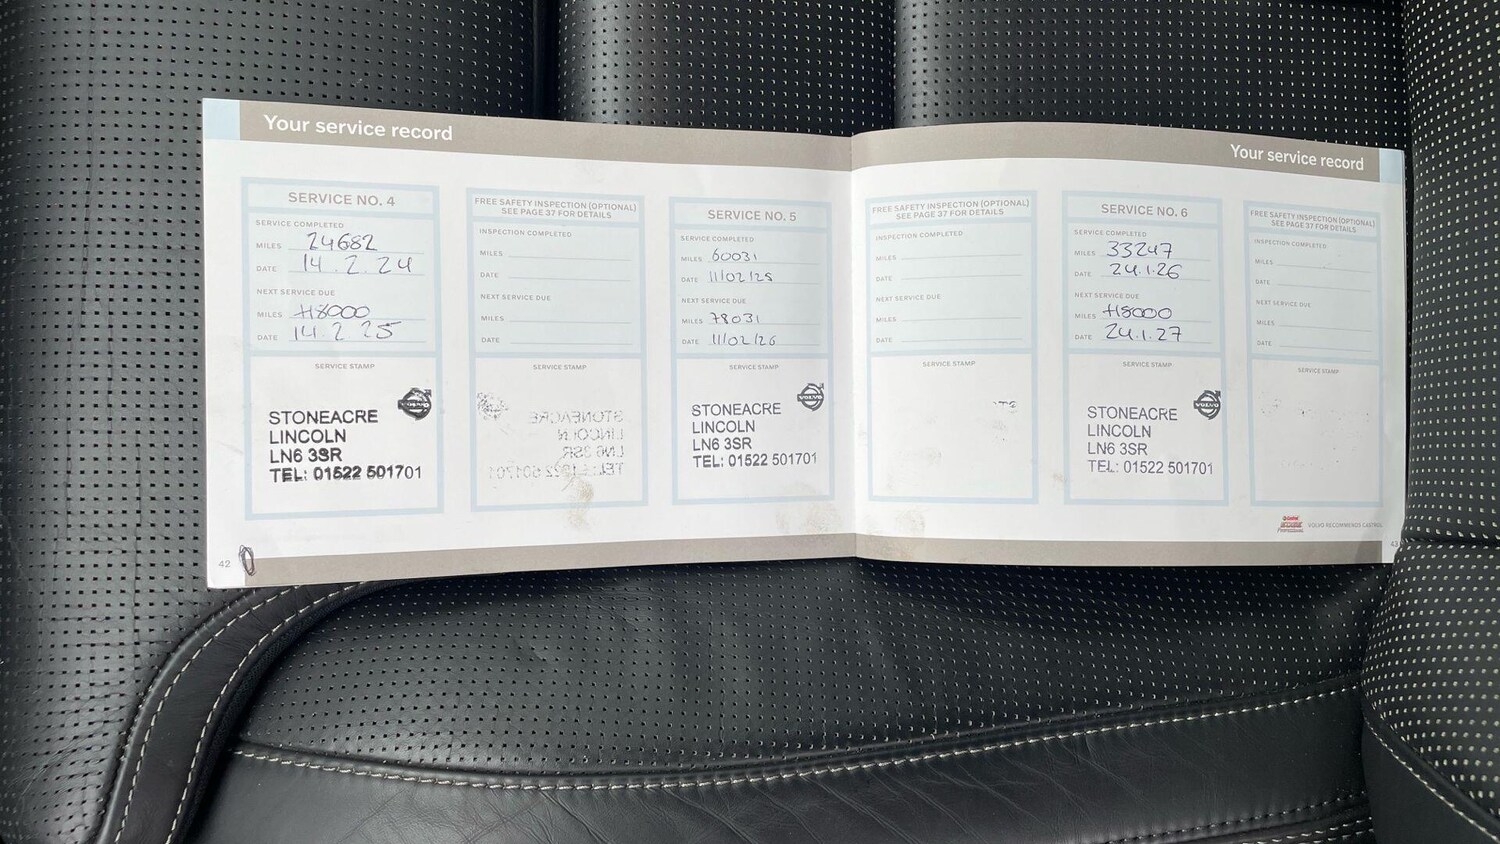 Your service record
SERVICE NO. 4
SERVICE COMPLETED
MILES 24682
DATE 14.2.24
NEXT SERVICE DUE
MILES +18000
DATE 14.2.25
SERVICE STAMP
VOLVO
STONEACRE
LINCOLN
LN6 3SR
TEL: 01522 501701
42
FREE SAFETY INSPECTION (OPTIONAL)
SEE PAGE 37 FOR DETAILS
INSPECTION COMPLETED
MILES
DATE
NEXT SERVICE DUE
MILES
DATE
SERVICE STAMP
STONEACRE
LINCOLN
LN6 3SR
TEL: 01522 501701
SERVICE NO. 5
SERVICE COMPLETED
MILES 60031
DATE 11/02/25
NEXT SERVICE DUE
MILES 78031
DATE 11/02/26
SERVICE STAMP
VOLVO
STONEACRE
LINCOLN
LN6 3SR
TEL: 01522 501701
Your service record
FREE SAFETY INSPECTION (OPTIONAL)
SEE PAGE 37 FOR DETAILS
INSPECTION COMPLETED
MILES
DATE
NEXT SERVICE DUE
MILES
DATE
SERVICE STAMP
SERVICE NO. 6
SERVICE COMPLETED
MILES 33247
DATE 24.1.26
NEXT SERVICE DUE
MILES +18000
DATE 24.1.27
SERVICE STAMP
VOLVO
STONEACRE
LINCOLN
LN6 3SR
TEL: 01522 501701
FREE SAFETY INSPECTION (OPTIONAL)
SEE PAGE 37 FOR DETAILS
INSPECTION COMPLETED
MILES
DATE
NEXT SERVICE DUE
MILES
DATE
SERVICE STAMP
Castrol
VOLVO RECOMMENDS CASTROL
43